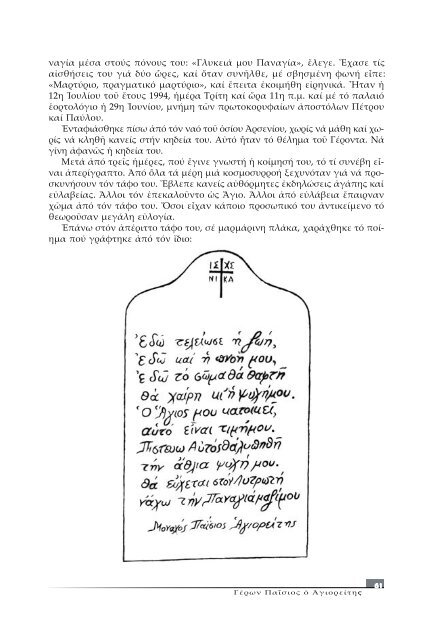 ναγία μέσα στούς πόνους του: «Γλυκειά μου Παναγία», ἔλεγε. Ἔχασε τίς
αἰσθήσεις του γιά δύο ὧρες, καί ὅταν συνῆλθε, μέ σβησμένη φωνή εἶπε:
«Μαρτύριο, πραγματικό μαρτύριο», καί ἔπειτα ἐκοιμήθη εἰρηνικά. Ἦταν ἡ
12η Ἰουλίου τοῦ ἔτους 1994, ἡμέρα Τρίτη καί ὥρα 11η π.μ. καί μέ τό παλαιό
ἑορτολόγιο ἡ 29η Ἰουνίου, μνήμη τῶν πρωτοκορυφαίων ἀποστόλων Πέτρου
καί Παύλου.
Ἐνταφιάσθηκε πίσω ἀπό τόν ναό τοῦ ὁσίου Ἀρσενίου, χωρίς νά μάθη καί χω-
ρίς νά κληθῆ κανείς στήν κηδεία του. Αὐτό ἦταν τό θέλημα τοῦ Γέροντα. Νά
γίνη ἀφανῶς ἡ κηδεία του.
Μετά ἀπό τρεῖς ἡμέρες, πού ἔγινε γνωστή ἡ κοίμησή του, τό τί συνέβη εἶ-
ναι ἀπερίγραπτο. Ἀπό ὅλα τά μέρη μιά κοσμοσυρροή ξεχυνόταν γιά νά προ-
σκυνήσουν τόν τάφο του. Ἔβλεπε κανείς αὐθόρμητες ἐκδηλώσεις ἀγάπης καί
εὐλαβείας. Ἄλλοι τόν ἐπεκαλοῦντο ὡς Ἅγιο. Ἄλλοι ἀπό εὐλάβεια ἔπαιρναν
χῶμα ἀπό τόν τάφο του. Ὅσοι εἶχαν κάποιο προσωπικό του ἀντικείμενο τό
θεωροῦσαν μεγάλη εὐλογία.
Ἐπάνω στόν ἀπέριττο τάφο του, σέ μαρμάρινη πλάκα, χαράχθηκε τό ποί-
ημα πού γράφτηκε ἀπό τόν ἴδιο:
ΙΣ ΧΣ
ΝΙ ΚΑ
Ἐδῶ τελείωσε ἡ ζωή,
Ἐδῶ καί ἡ πνοή μου,
Ἐδῶ τό σῶμα θά θαφτῆ
Θά χαίρη κι' ἡ ψυχή μου.
Ὁ Ἅγιος μου κατοικεῖ,
αὐτό εἶναι τιμή μου.
Πιστεύω Αὐτός θά λυπηθῆ
τήν ἄθλια ψυχή μου.
Θά εὔχεται στόν Λυτρωτή
νἄχω τήν Παναγιά μαζί μου
Μοναχός Παΐσιος Ἁγιορείτης
Γέρων Παΐσιος ὁ Ἁγιορείτης 61